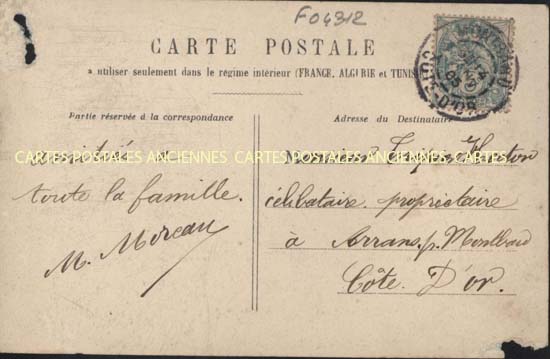 F04312
CARTE POSTALE
à utiliser seulement dans le régime intérieur (FRANCE, ALGERIE et TUNIS
Partie réservée à la correspondance
Adresse du Destinataire
CARTES POSTALES ANCIENNES CARTES POSTALES ANCIENNES CARTES POSTALES ANCIENNES
amitiés à
toute la famille.
M. Moreau
Monsieur
célibataire propriétaire
à Arrans, p. Montbard
Côte D'or.
CÔTE-D'OR